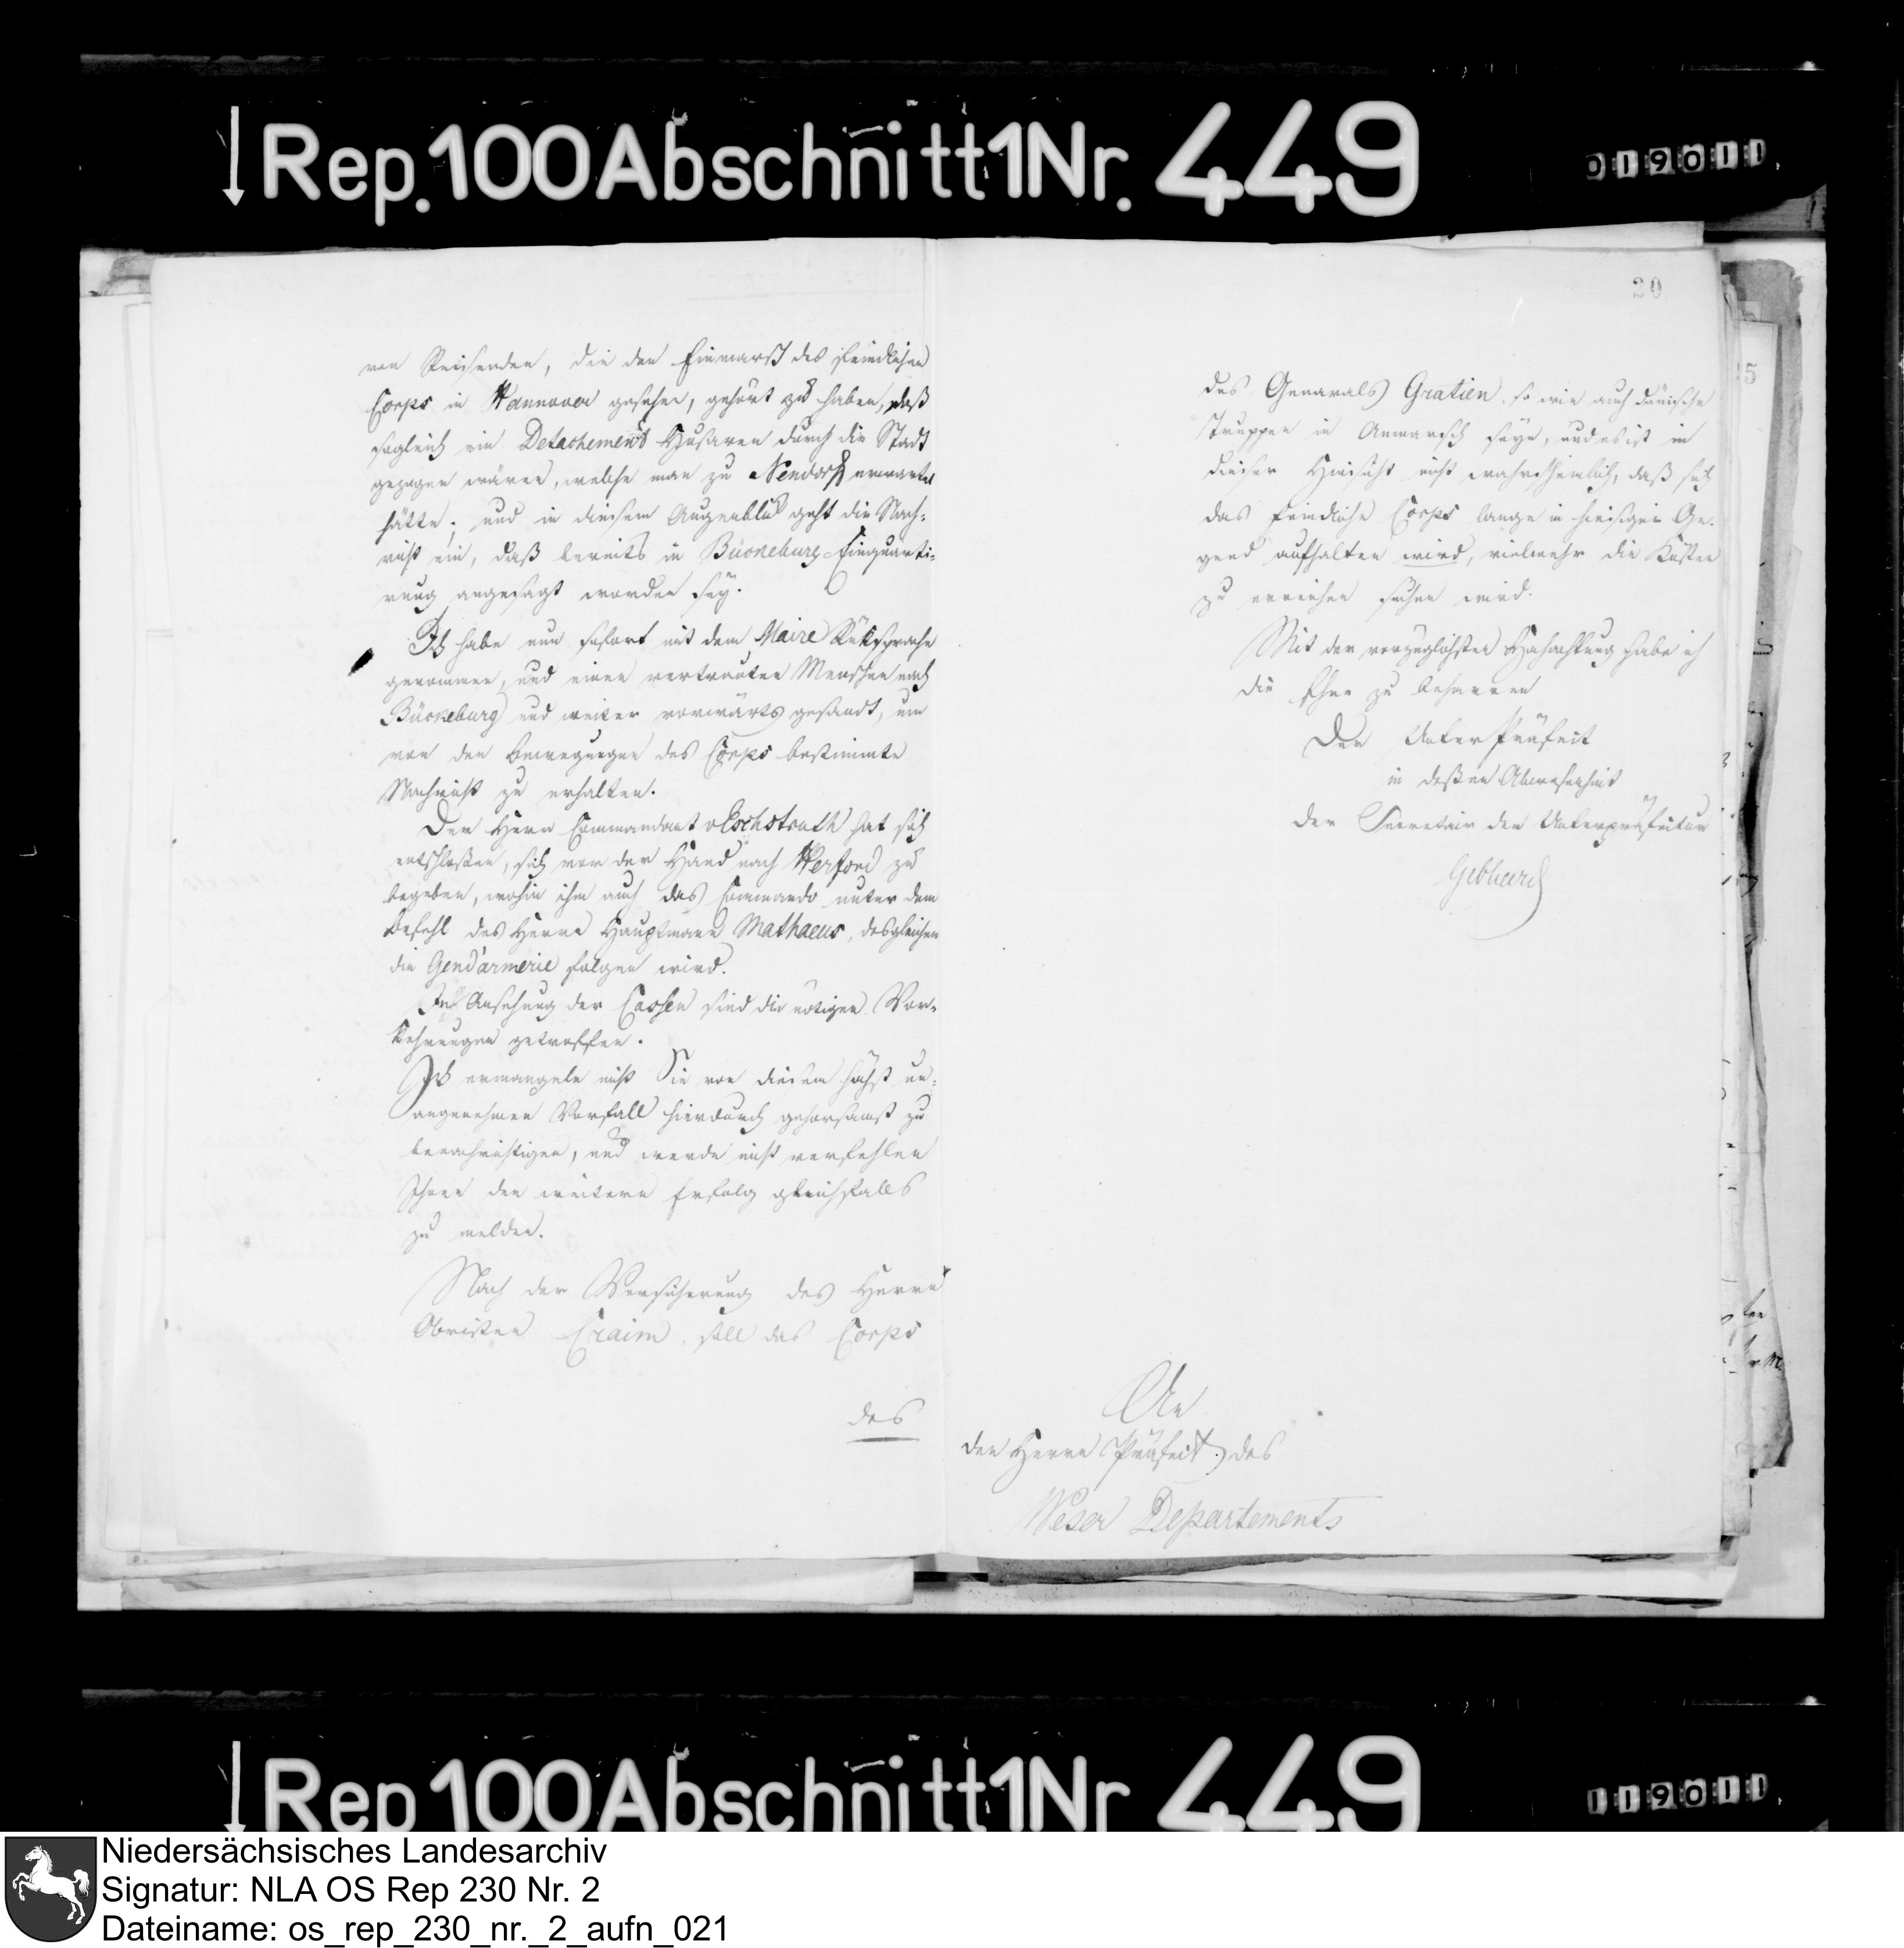 Rep. 100 Abschnitt 1 Nr. 449
019011
von Reisenden, die den Einmarsch des feindlichen
Corps in Hannover gesehen, gehört zu haben, daß
sogleich ein Detachement Husaren durch die Stadt
gezogen wären, welche man zu Nendorf erwartet
hätte; und in diesem Augenblick geht die Nach-
richt ein, daß bereits in Bückeburg Einquarti-
rung angesagt worden sey.
Ich habe nun sofort mit dem Maire Rüksprache
genommen, und einen vertrauten Menschen nach
Bückeburg und weiter vorwärts gesandt, um
von den Bewegungen des Corps bestimmte
Nachricht zu erhalten.
Der Herr Commandant v Eschstruth hat sich
entschloßen, sich vor der Hand nach Herford zu
begeben, wohin ihm auch das Commando unter dem
Befehl des Herrn Hauptmann Mathaeus, desgleichen
die Gend'armerie folgen wird.
In Ansehung der Cassen sind die nötigen Vor-
kehrungen getroffen.
Ich ermangele nicht Sie von diesem höchst un-
angenehmen Vorfall hierdurch gehorsamst zu
benachrichtigen, und werde nicht verfehlen
Ihnen den weitern Erfolg gleichfalls
zu melden.
Nach der Versicherung des Herrn
Obristen soll das Corps
des
20
des Generals Gratien, so wie auch dänische
Truppen in Anmarsch seyn, und es ist in
dieser Hinsicht nicht wahrscheinlich, daß sich
das feindliche Corps lange in hiesiger Ge-
gend aufhalten wird, vielmehr die Küsten
zu erreichen suchen wird.
Mit der vorzüglichsten Hochachtung habe ich
die Ehre zu beharren
Der Unter Präfect
in deßen Abwesenheit
der Secretair der Unterpräfectur
Gebhard
An
den Herrn Präfect des
Weser Departements
15
Rep 100 Abschnitt 1 Nr 449
119011
Niedersächsisches Landesarchiv
Signatur: NLA OS Rep 230 Nr. 2
Dateiname: os_rep_230_nr._2_aufn_021